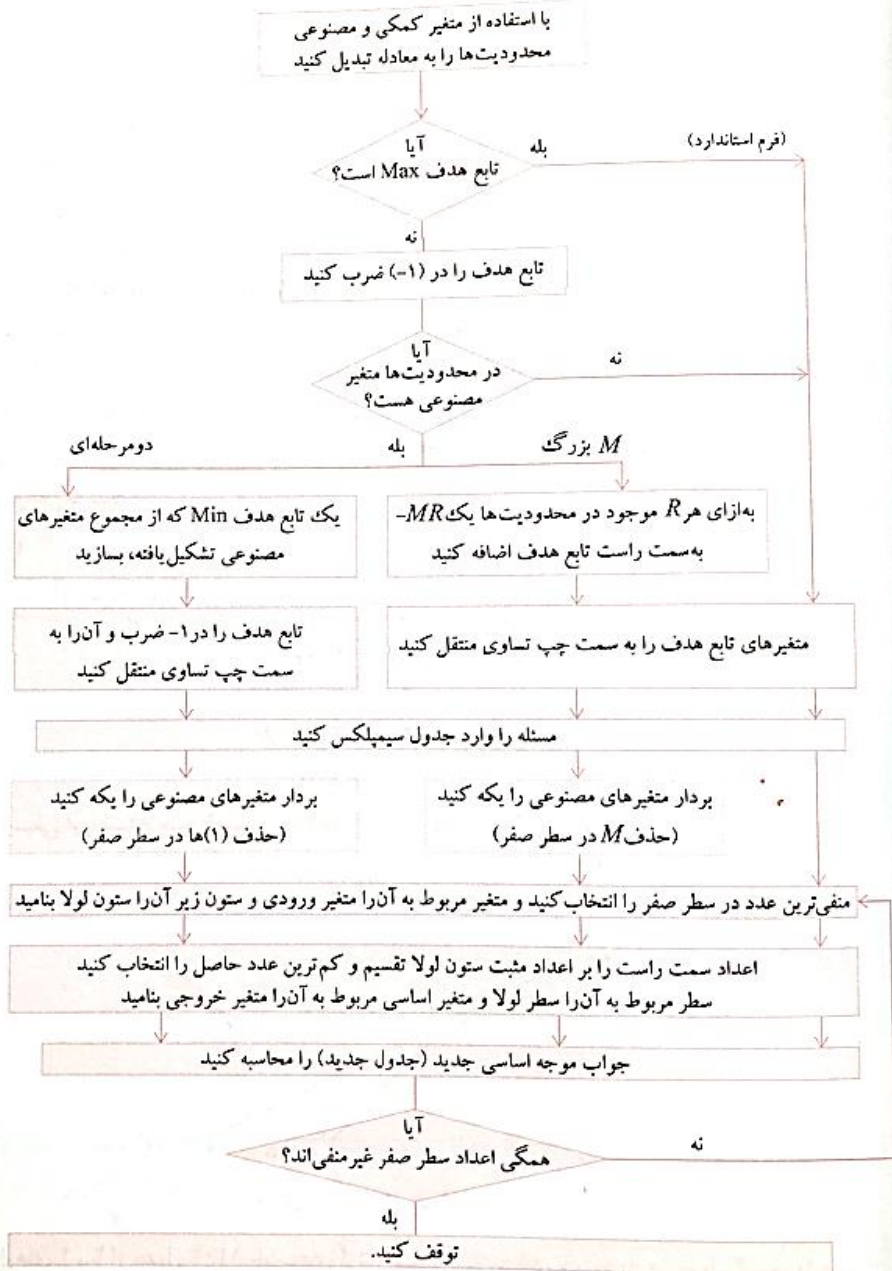 با استفاده از متغیر کمکی و مصنوعی
محدودیت‌ها را به معادله تبدیل کنید
آیا
تابع هدف Max است؟
بله
(فرم استاندارد)
نه
تابع هدف را در (۱-) ضرب کنید
آیا
در محدودیت‌ها متغیر
مصنوعی هست؟
نه
بله
M بزرگ
دومرحله‌ای
به‌ازای هر R موجود در محدودیت‌ها یک MR-
به‌سمت راست تابع هدف اضافه کنید
یک تابع هدف Min که از مجموع متغیرهای
مصنوعی تشکیل یافته، بسازید
متغیرهای تابع هدف را به سمت چپ تساوی منتقل کنید
تابع هدف را در ۱- ضرب و آن‌را به
سمت چپ تساوی منتقل کنید
مسئله را وارد جدول سیمپلکس کنید
بردار متغیرهای مصنوعی را یکه کنید
(حذف M در سطر صفر)
بردار متغیرهای مصنوعی را یکه کنید
(حذف (۱)ها در سطر صفر)
منفی‌ترین عدد در سطر صفر را انتخاب کنید و متغیر مربوط به آن‌را متغیر ورودی و ستون زیر آن‌را ستون لولا بنامید
اعداد سمت راست را بر اعداد مثبت ستون لولا تقسیم و کم‌ترین عدد حاصل را انتخاب کنید
سطر مربوط به آن‌را سطر لولا و متغیر اساسی مربوط به آن‌را متغیر خروجی بنامید
جواب موجه اساسی جدید (جدول جدید) را محاسبه کنید
آیا
همگی اعداد سطر صفر غیرمنفی‌اند؟
نه
بله
توقف کنید.